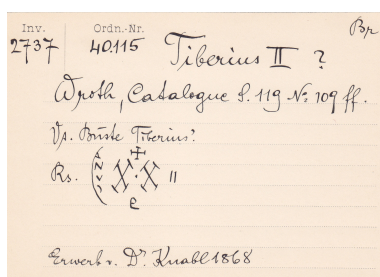 Inv. Ordn.-Nr. Br
2737 40115 Tiberius II ?
Wroth, Catalogue S. 119 No 109 ff.
Vs. Büste Tiberius?
+
Rs. ANNO XX · XX II
E
Erwerb v. Dr. Knabl 1868